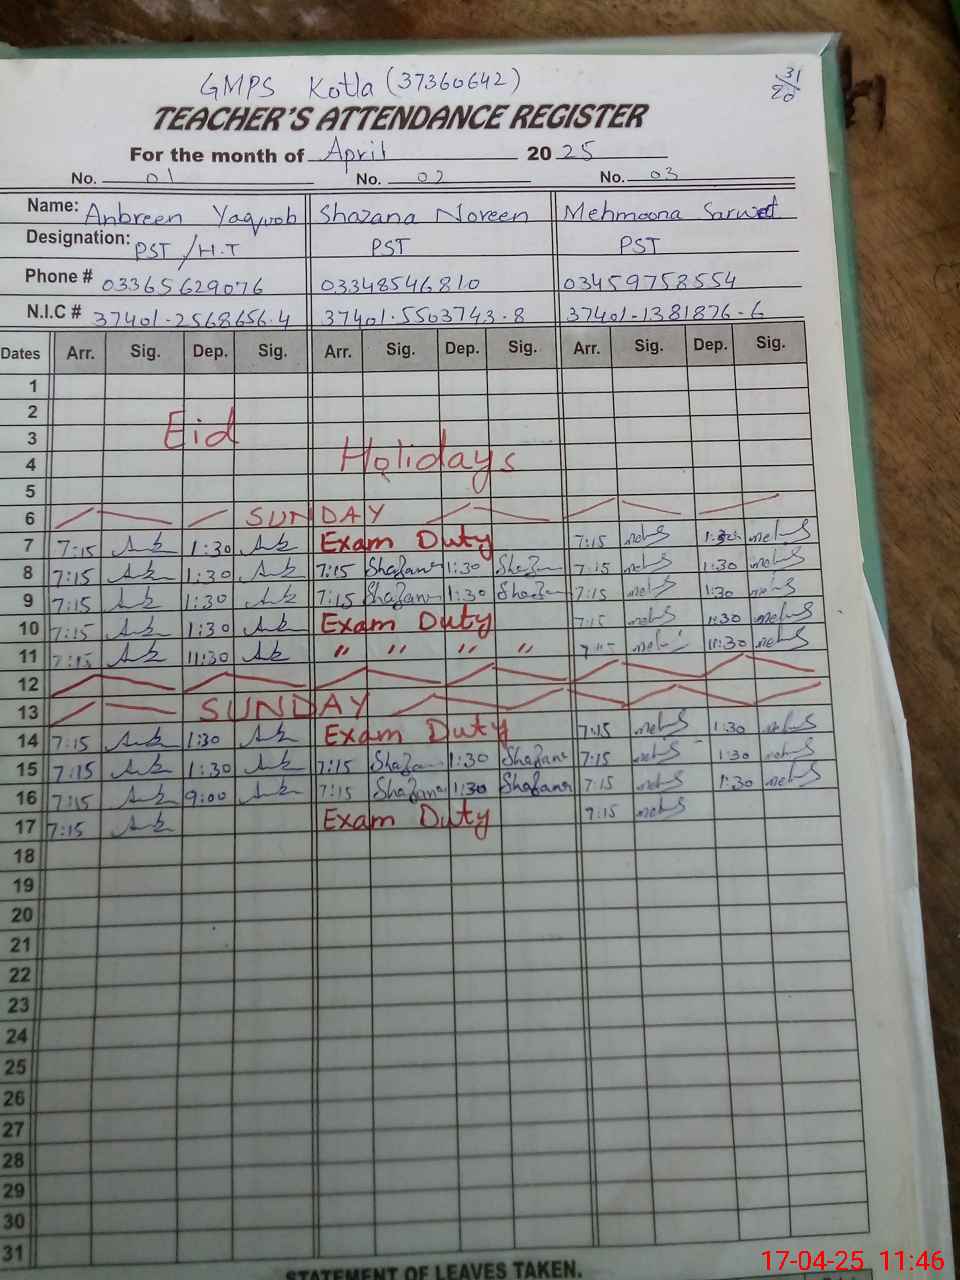 GMPS Kotla (37360642)
31/20
TEACHER'S ATTENDANCE REGISTER
For the month of April 2025
No. 01 No. 02 No. 03
Name: Anbreen Yaqwob Shazana Noreen Mehmoona Sarwat
Designation: PST/H.T PST PST
Phone # 03365629076 03348546810 03459758554
N.I.C # 37401-2568656-4 37401-5503743-8 37401-1381876-6
Dates Arr. Sig. Dep. Sig. Arr. Sig. Dep. Sig. Arr. Sig. Dep. Sig.
1
2
3 Eid
4 Holidays
5
6 SUNDAY
7 7:15 1:30 Exam Duty 7:15 1:30
8 7:15 1:30 7:15 Shazana 1:30 7:15 1:30
9 7:15 1:30 7:15 Shazana 1:30 7:15 1:30
10 7:15 1:30 Exam Duty 7:15 1:30
11 7:15 11:30 " " " " 7:15 11:30
12
13 SUNDAY
14 7:15 1:30 Exam Duty 7:15 1:30
15 7:15 1:30 7:15 1:30 Shazana 7:15 1:30
16 7:15 9:00 7:15 Shazana 1:30 Shazana 7:15 1:30
17 7:15 Exam Duty 7:15
18
19
20
21
22
23
24
25
26
27
28
29
30
31
STATEMENT OF LEAVES TAKEN.
17-04-25 11:46